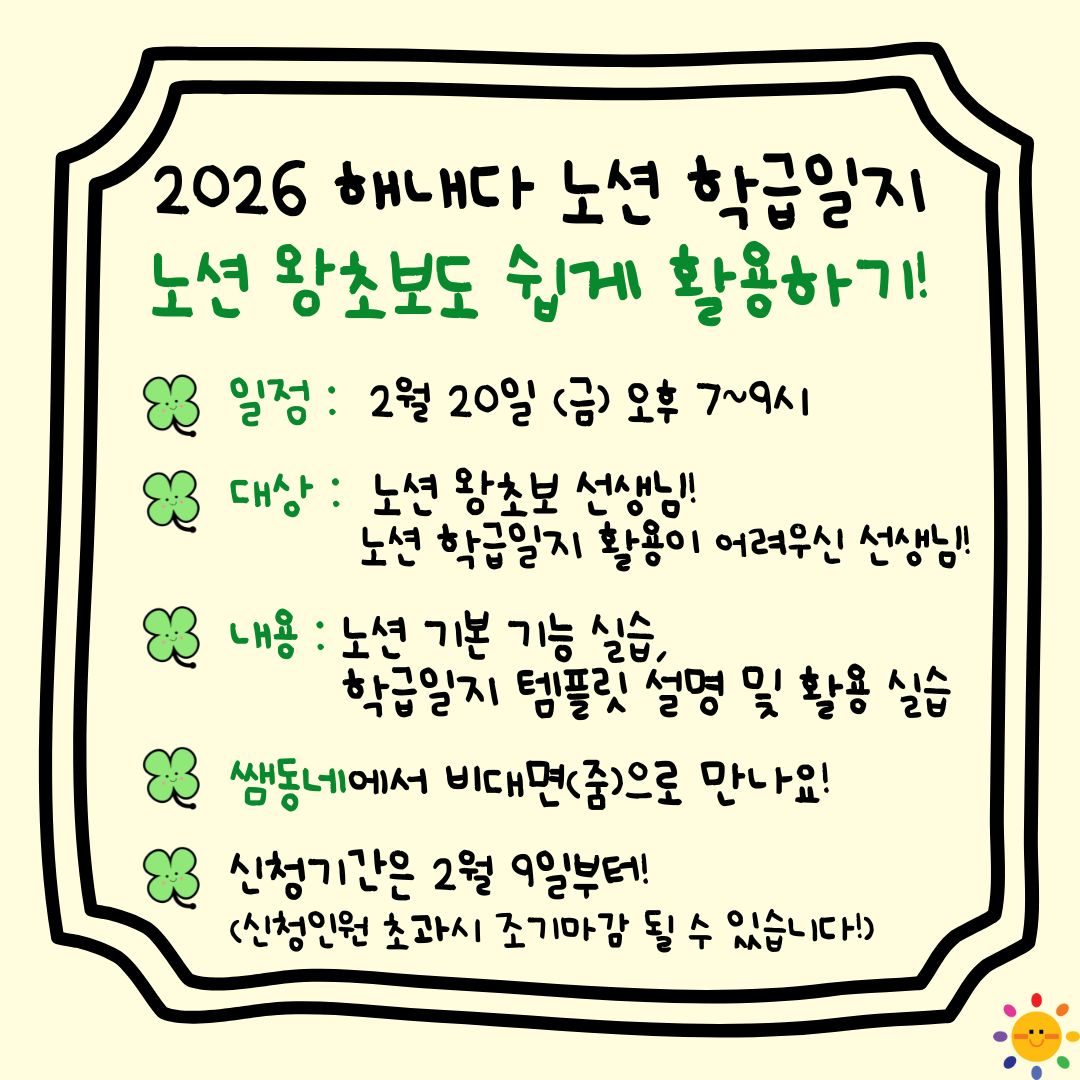 2026 해내다 노션 학급일지
노션 왕초보도 쉽게 활용하기!
일정 : 2월 20일 (금) 오후 7~9시
대상 : 노션 왕초보 선생님!!
노션 학급일지 활용이 어려우신 선생님!!
내용 : 노션 기본 기능 실습,
학급일지 템플릿 설명 및 활용 실습
쌤동네에서 비대면(줌)으로 만나요!
신청기간은 2월 9일부터!
(신청인원 초과시 조기마감 될 수 있습니다!)